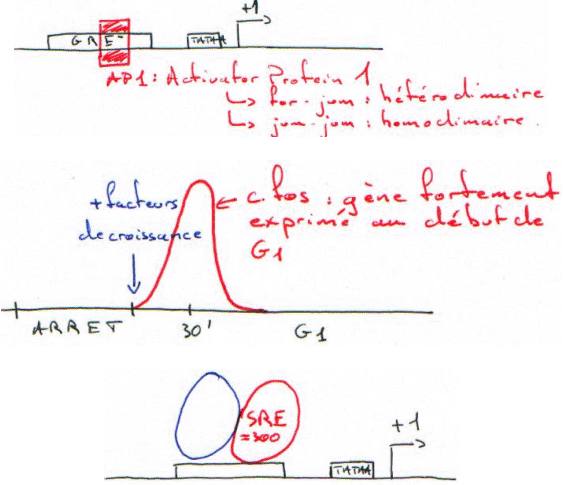 +1
GRE
TATAA
AP1: Activator Protein 1
↳ fos-jun : hétérodimaire
↳ jun-jun : homodimaire.
+ facteurs
de croissance
← c.fos : gène fortement
exprimé au début de
G1
ARRET 30' G1
SRE
=300
+1
TATAA